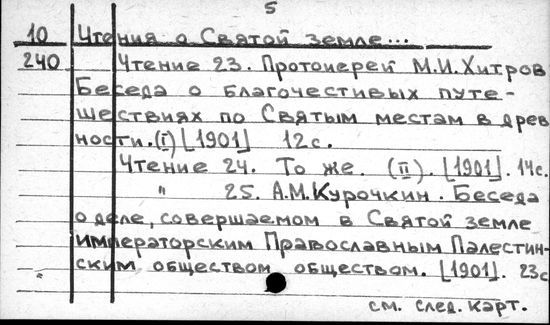 5
10 Чтения о Святой земле...
240 Чтение 23. Протоиерей М.И.Хитров
Беседа о благочестивых путе-
шествиях по Святым местам в древ
ности.(I) [1901] 12с.
Чтение 24. То же. (II). [1901]. 14с.
" 25. А.М.Курочкин. Беседа
о деле, совершаемом в Святой земле
императорским Православным Палестин-
ским обществом обществом. [1901]. 23с
см. след. карт.